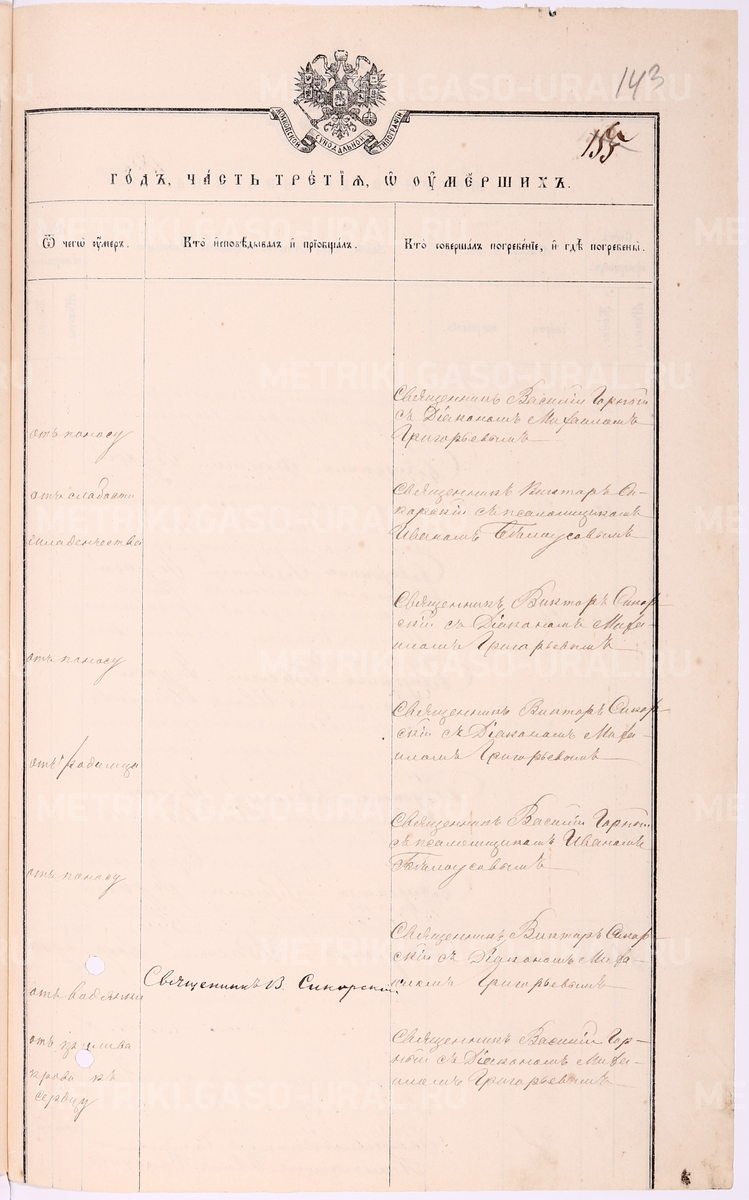 143
155
МОСКОВСКОЙ СѴНОДАЛЬНОЙ ТИПОГРАФІИ
го́дъ, ча́сть тре́тїѧ, ѡ҆ ᲂу҆ме́ршихъ.
Ѿ чегѡ̀ ᲂу҆́меръ.
Кто̀ и҆сповѣ́дывалъ и҆ прїѡбща́лъ.
Кто̀ соверша́лъ погребе́нїе, и҆ гдѣ̀ погребены̀.
отъ поносу
Священникъ Василій Горный
съ Діакономъ Михаиломъ
Григорьевымъ
отъ слабости
младенчества
Священникъ Викторъ Си-
корскій съ псаломщикомъ
Иваномъ Бѣлоусовымъ
отъ поносу
Священникъ Викторъ Сикор-
скій съ Діакономъ Миха-
иломъ Григорьевымъ
отъ родимца
Священникъ Викторъ Сикор-
скій съ Діакономъ Миха-
иломъ Григорьевымъ
отъ поносу
Священникъ Василій Горный
съ псаломщикомъ Иваномъ
Бѣлоусовымъ
отъ водянки
Священникъ В. Сикорскій
Священникъ Викторъ Сикор-
скій съ Діакономъ Миха-
иломъ Григорьевымъ
отъ прилива
крови къ
сердцу
Священникъ Василій Гор-
ный съ Діакономъ Миха-
иломъ Григорьевымъ
METRIKI.GASO-URAL.RU